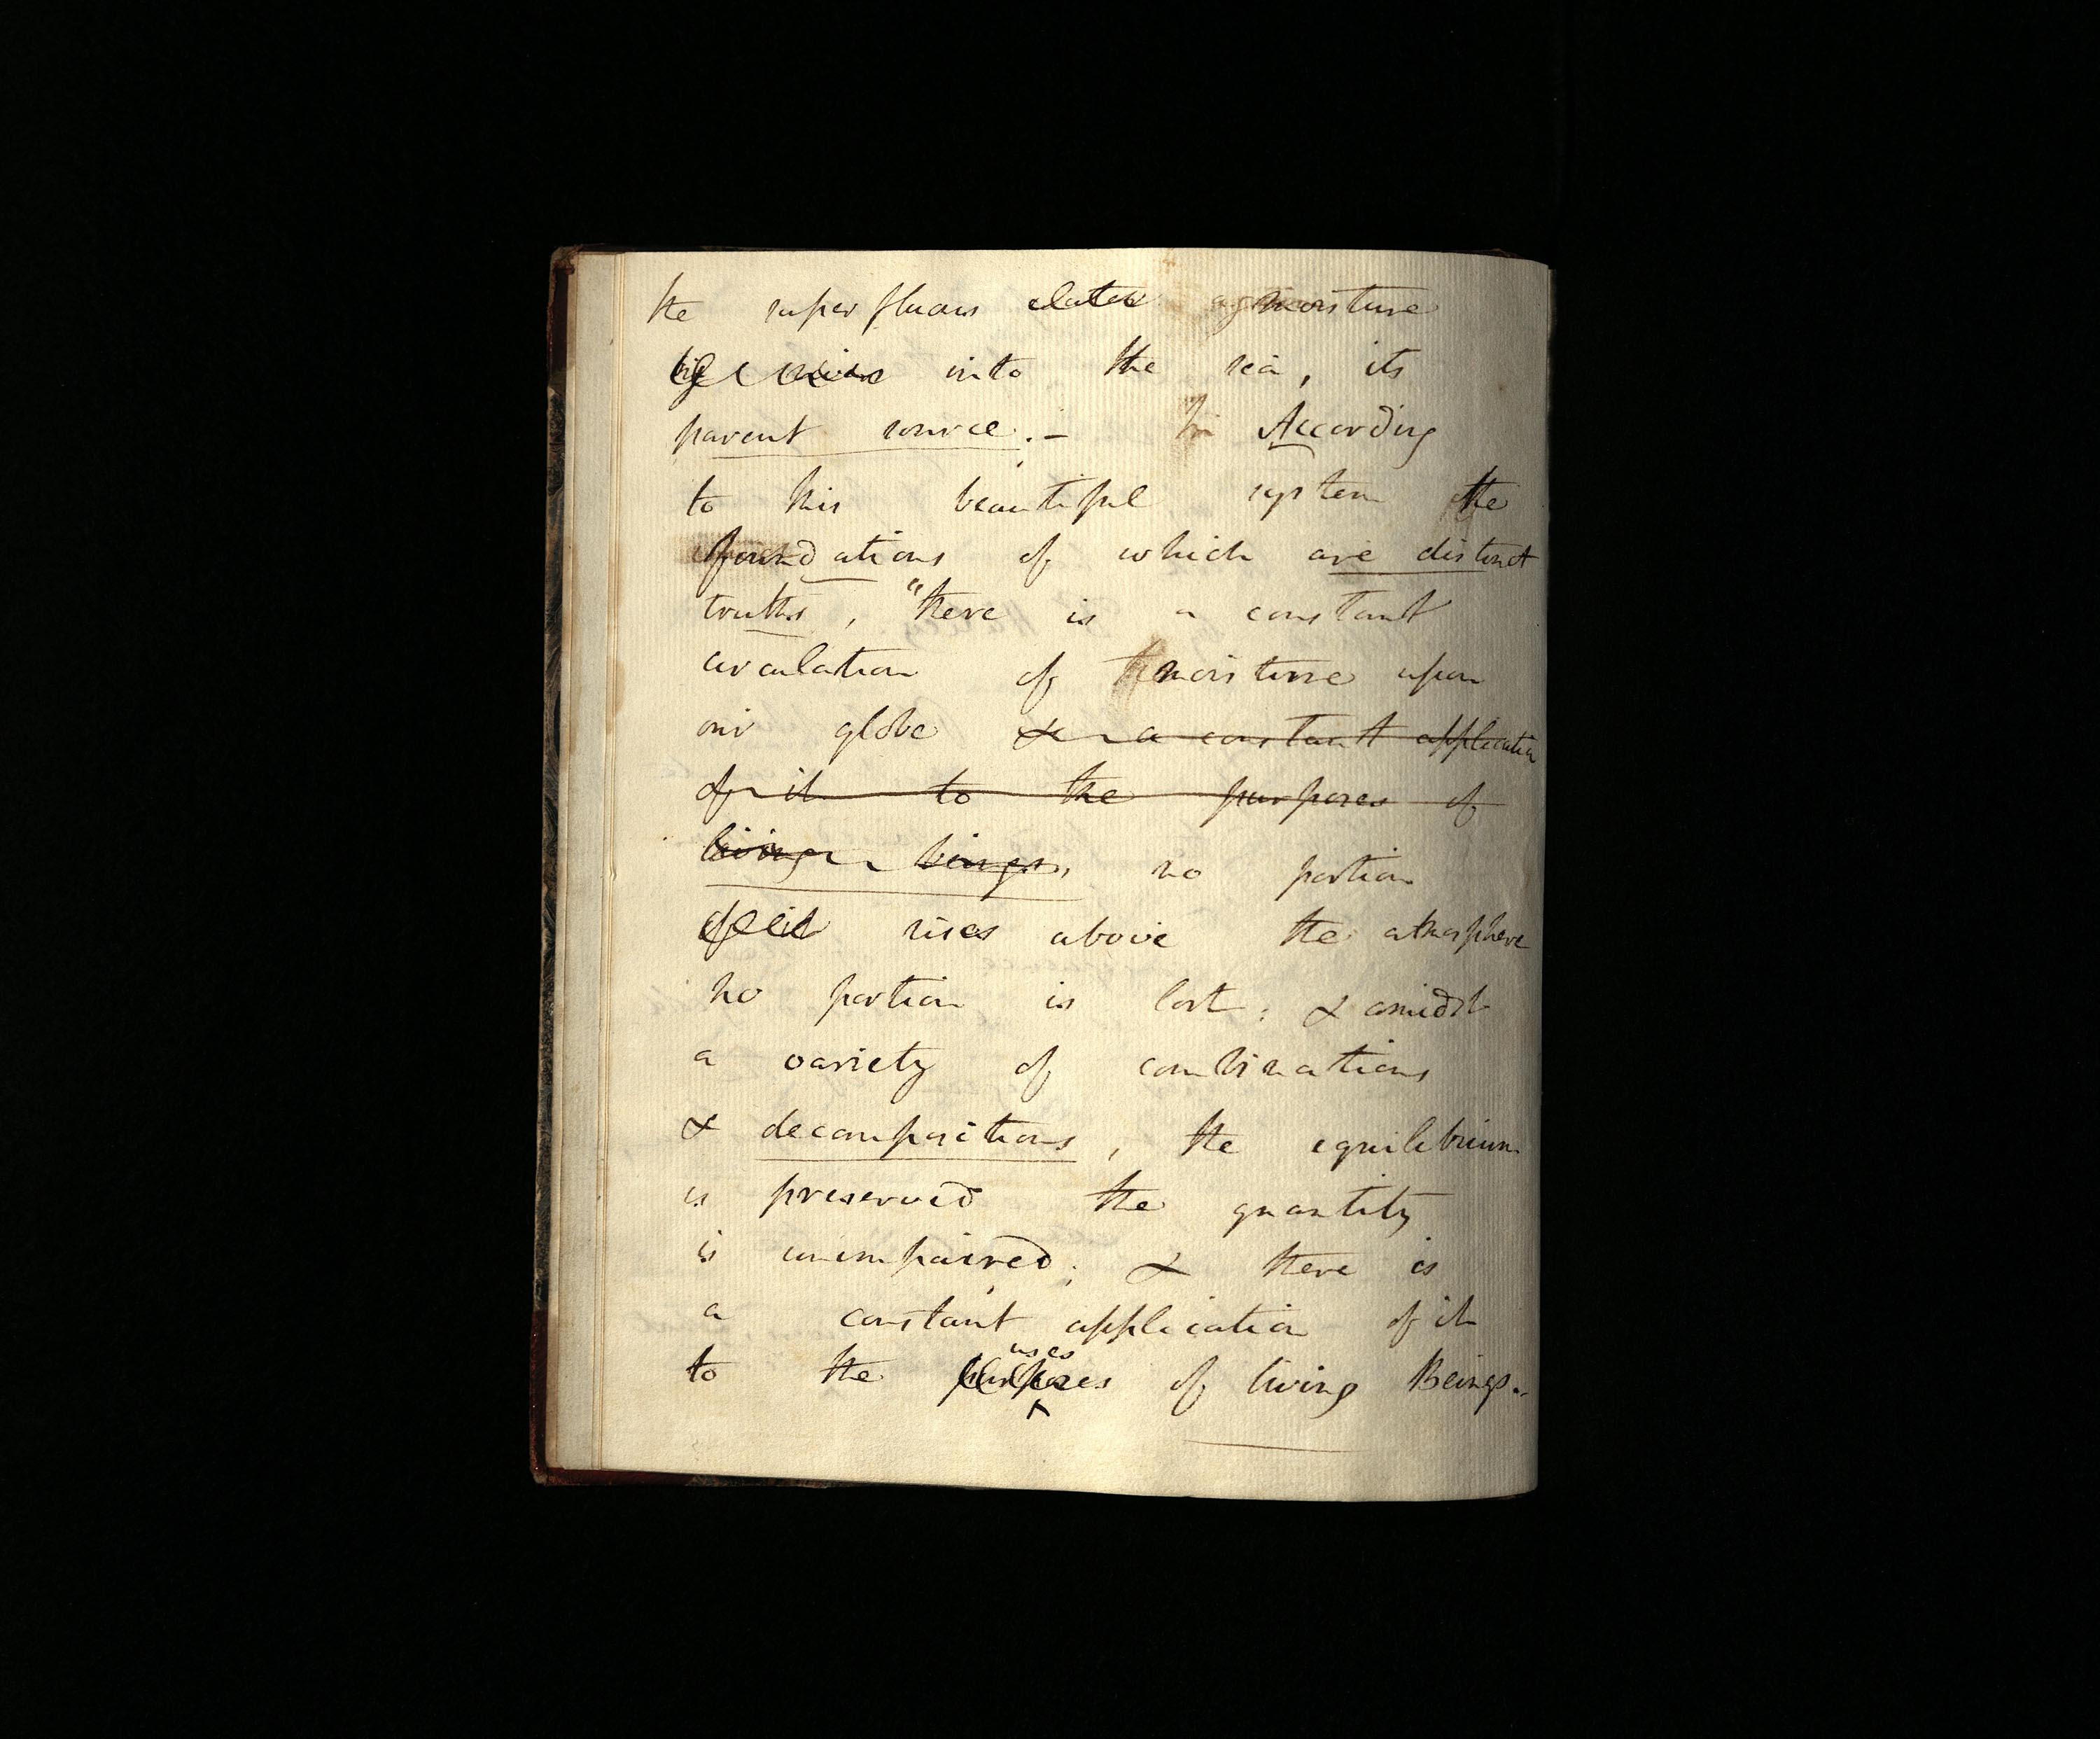 the superfluous moisture
into the sea, its
parent source. - According
to this beautiful system the
foundations of which are distinct
truths, "there is a constant
circulation of moisture upon
our globe & a constant application
of it to the purposes of
living beings, no portion
of it rises above the atmosphere
no portion is lost; & amidst
a variety of combinations
& decompositions, the equilibrium
is preserved the quantity
is unimpaired; & there is
a constant application of it
uses
to the purposes of living Beings.-